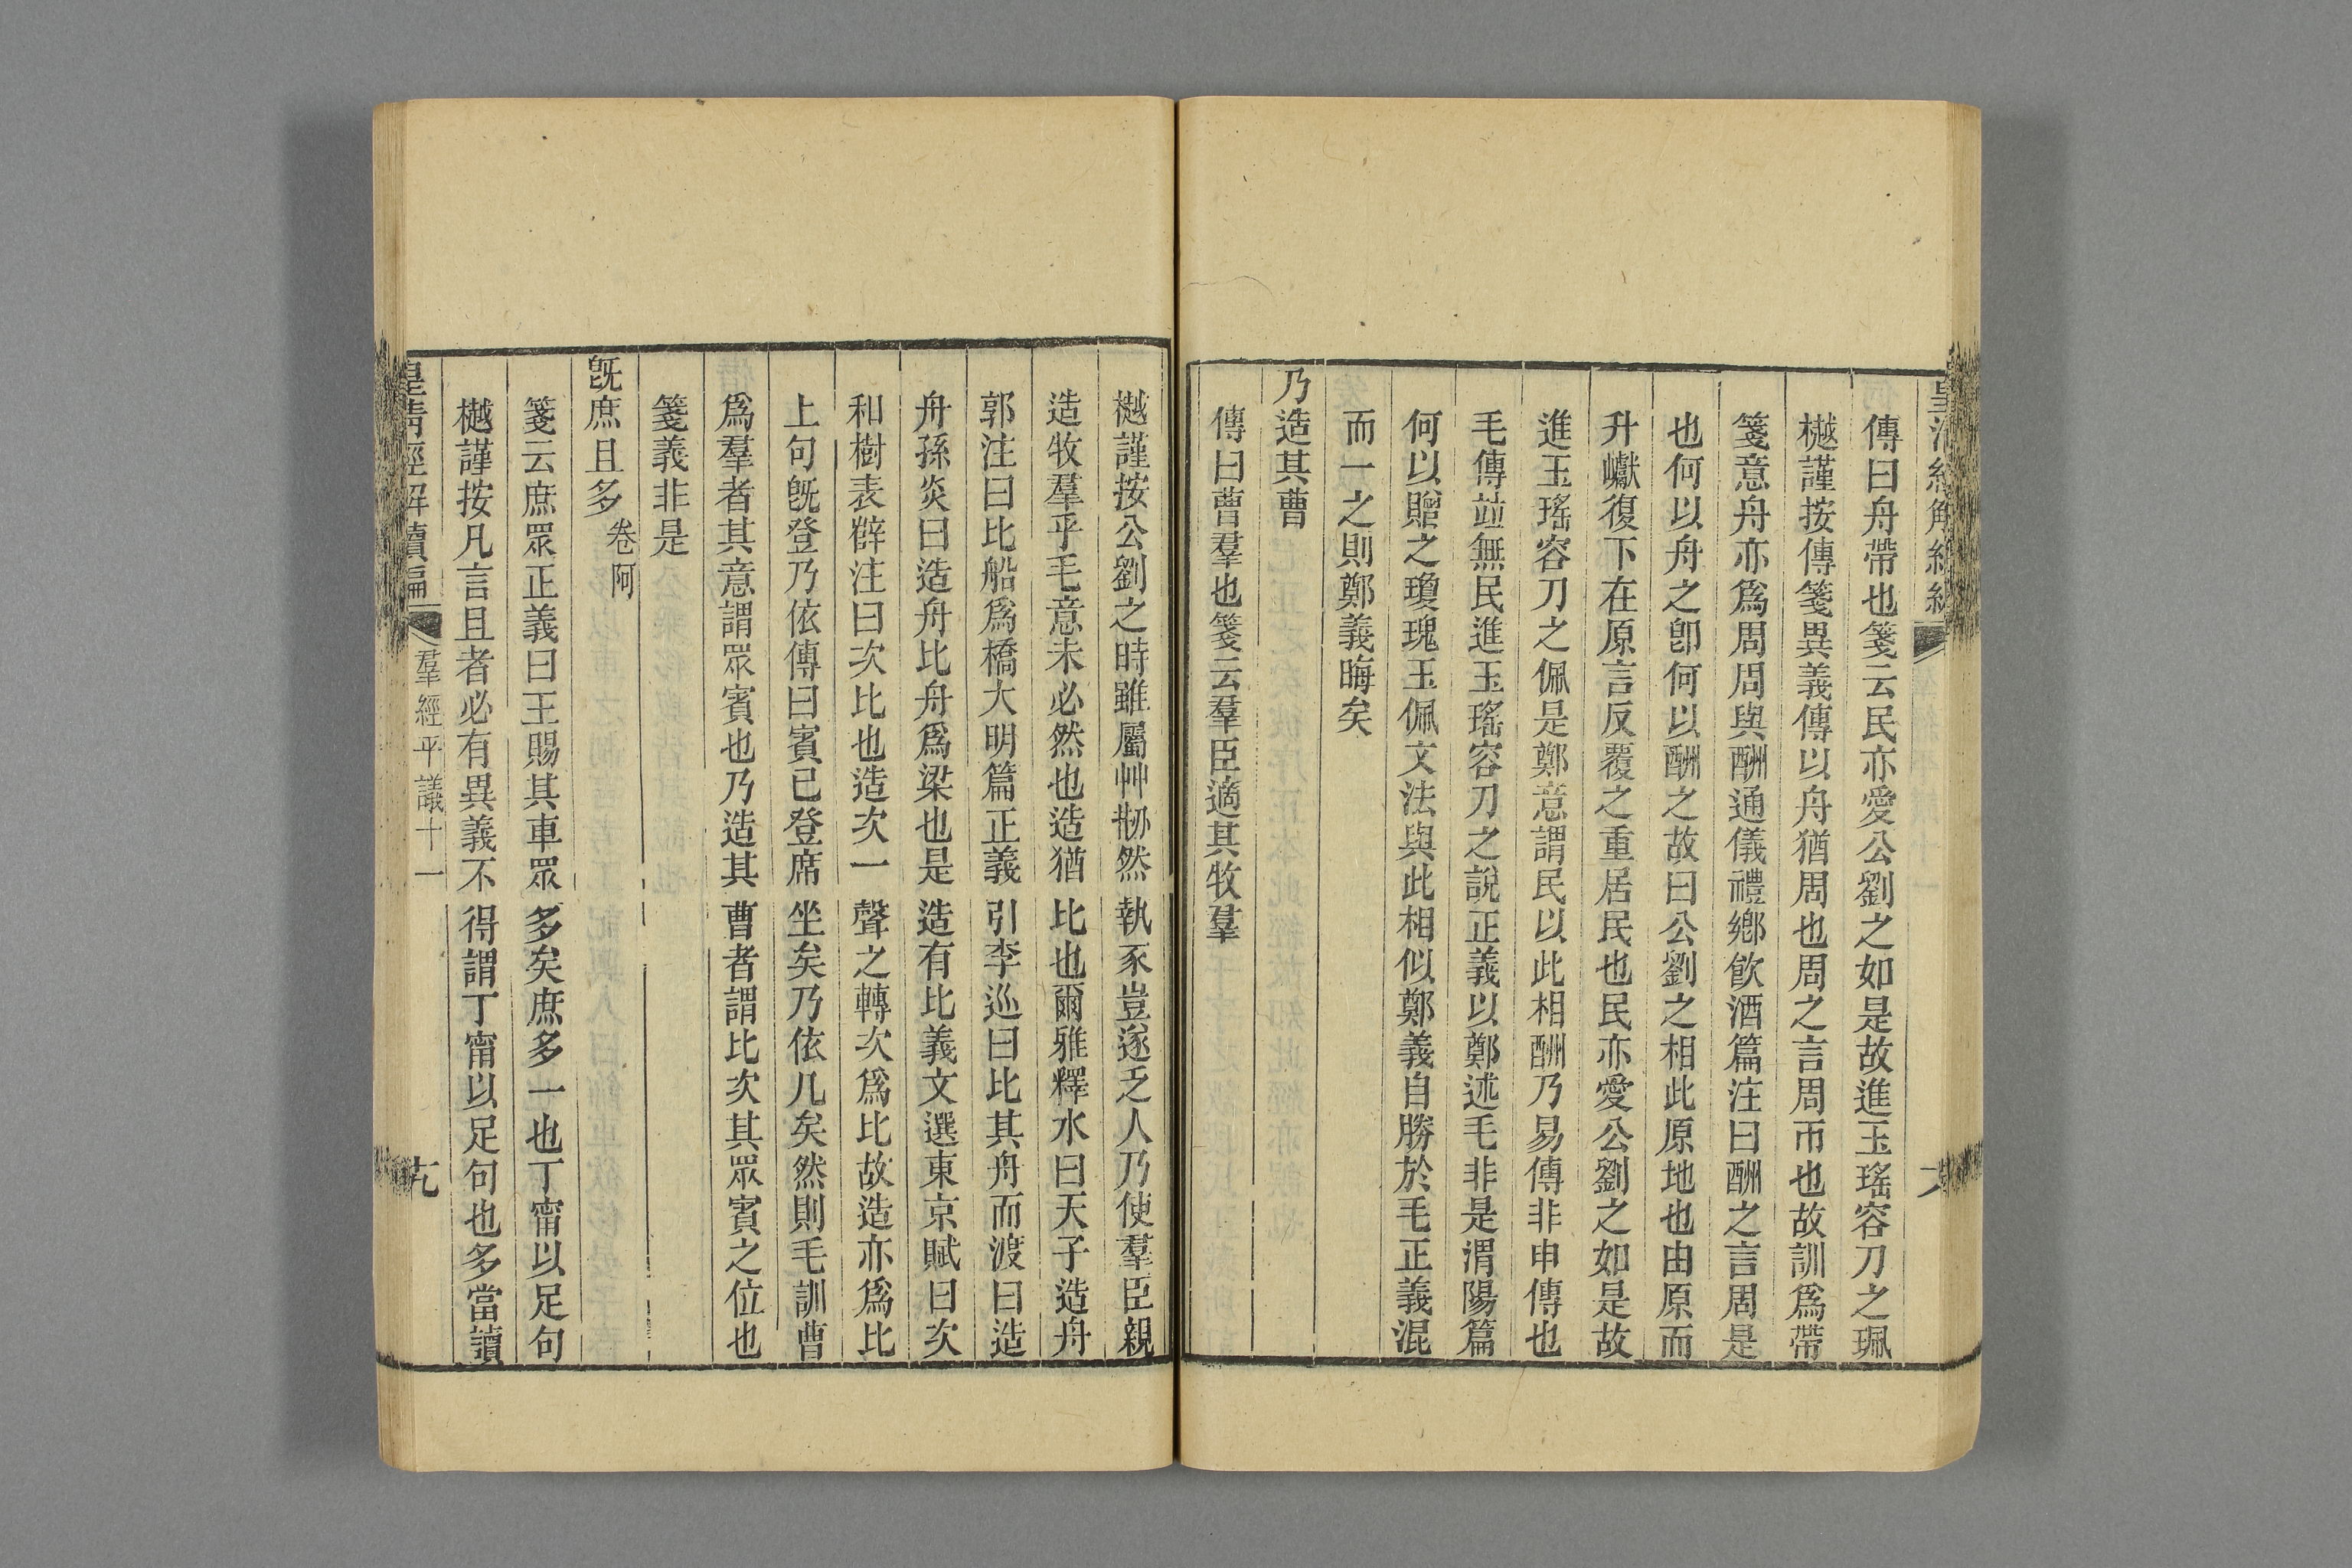 傳曰舟帶也箋云民亦愛公劉之如是故進玉瑤容刀之珮
樾謹按傳箋異義傳以舟猶周也周之言周帀也故訓爲帶
箋意舟亦爲周周與酬通儀禮鄉飮酒篇注曰酬之言周是
也何以舟之卽何以酬之故曰公劉之相此原地也由原而
升巘復下在原言反覆之重居民也民亦愛公劉之如是故
進玉瑤容刀之佩是鄭意謂民以此相酬乃易傳非申傳也
毛傳竝無民進玉瑤容刀之說正義以鄭述毛非是渭陽篇
何以贈之瓊瑰玉佩文法與此相似鄭義自勝於毛正義混
而一之則鄭義晦矣
乃造其曹
傳曰曹羣也箋云羣臣適其牧羣
樾謹按公劉之時雖屬艸刱然執豕豈遂乏人乃使羣臣親
造牧羣乎毛意未必然也造猶比也爾雅釋水曰天子造舟
郭注曰比船爲橋大明篇正義引李巡曰比其舟而渡曰造
舟孫炎曰造舟比舟爲梁也是造有比義文選東京賦曰次
和樹表薛注曰次比也造次一聲之轉次爲比故造亦爲比
上句旣登乃依傳曰賓已登席坐矣乃依几矣然則毛訓曹
爲羣者其意謂眾賓也乃造其曹者謂比次其眾賓之位也
箋義非是
旣庶且多 卷阿
箋云庶眾正義曰王賜其車眾多矣庶多一也丁甯以足句
樾謹按凡言且者必有異義不得謂丁甯以足句也多當讀
皇清經解續編 羣經平議十一 九